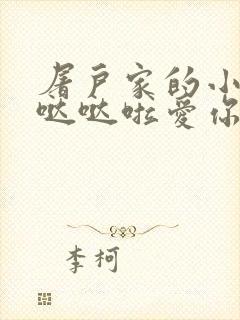 屠户家的小
哒哒啦爱你
李柯